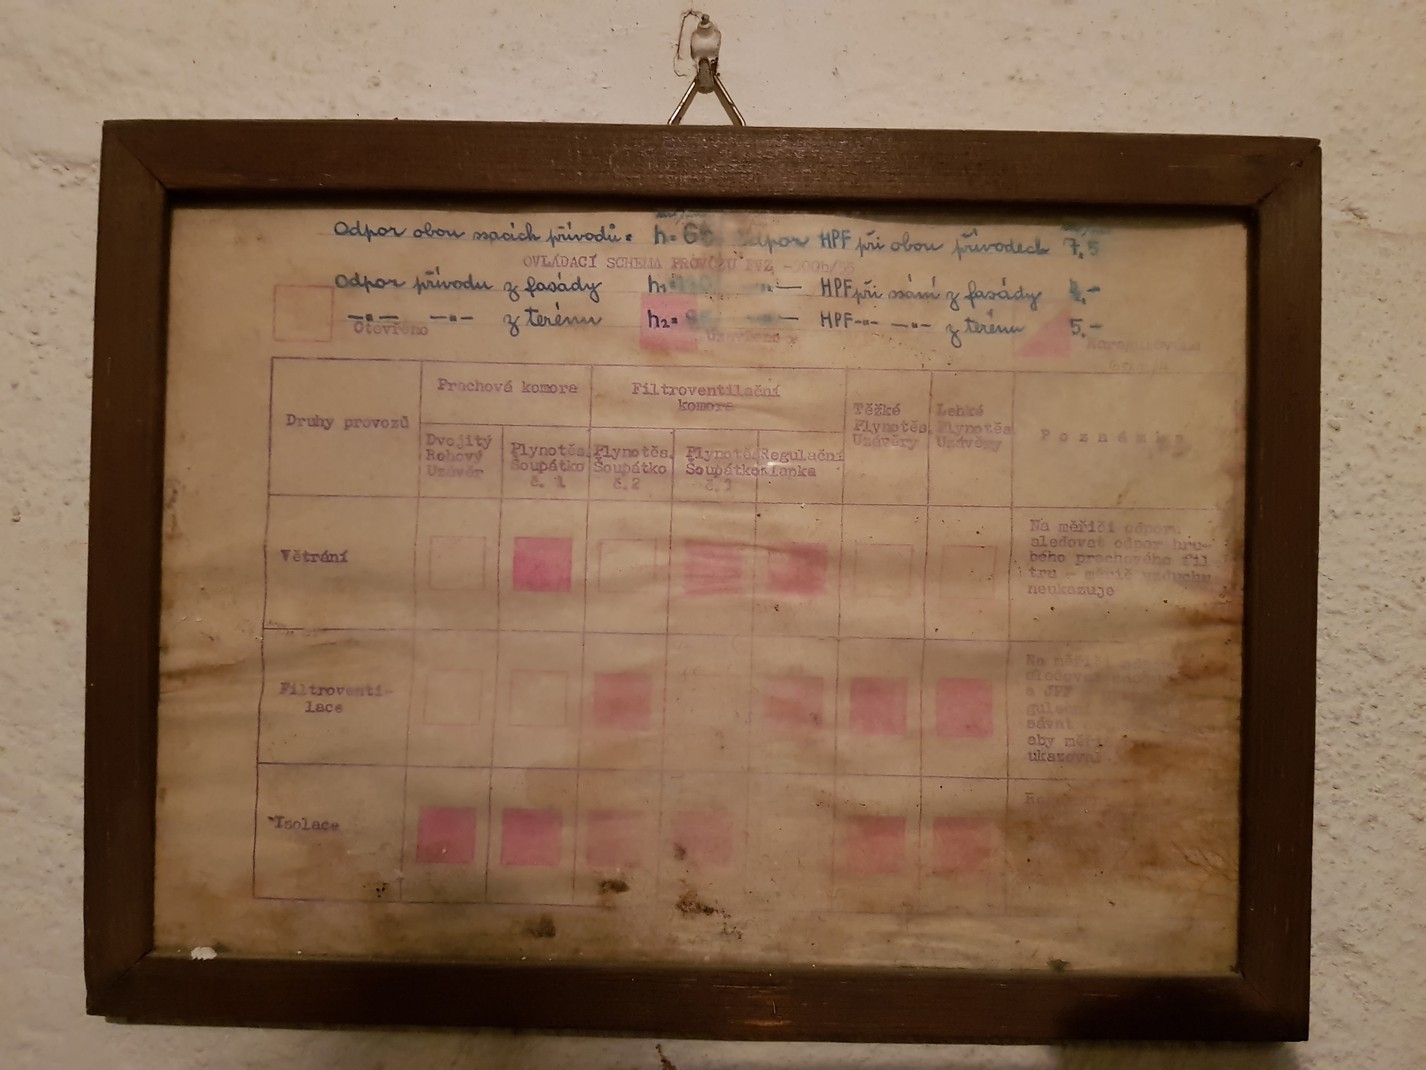 Odpor obou ssacích přívodů = h = 66 odpor HPF při obou přívodech 7,5
OVLÁDACÍ SCHEMA PROVOZU FVZ
Odpor přívodu z fasády h₁ -"- HPF při ssání z fasády -"-
-"- -"- z terénu h₂= -"- HPF -"- -"- z terénu 5.-
Otevřeno Uzavřeno
Druhy provozů
Prachová komora
Filtroventilační
komora
Dvojitý
Rohový
Uzávěr
Plynotěs.
Šoupátko
č. 1
Plynotěs.
Šoupátko
č.2
Plynotě.
Šoupátko
č.3
Regulační
klapka
Těžké
Plynotěs.
Uzávěry
Lehké
Plynotěs.
Uzávěry
Poznámka
Větrání
Na měřiči odporu
sledovat odpor hru-
bého prachového fil
tru - měřič vzduchu
neukazuje
Filtroventi-
lace
Na měřiči
sledovat
a JPF
sávat
aby měři
ukazoval
Isolace